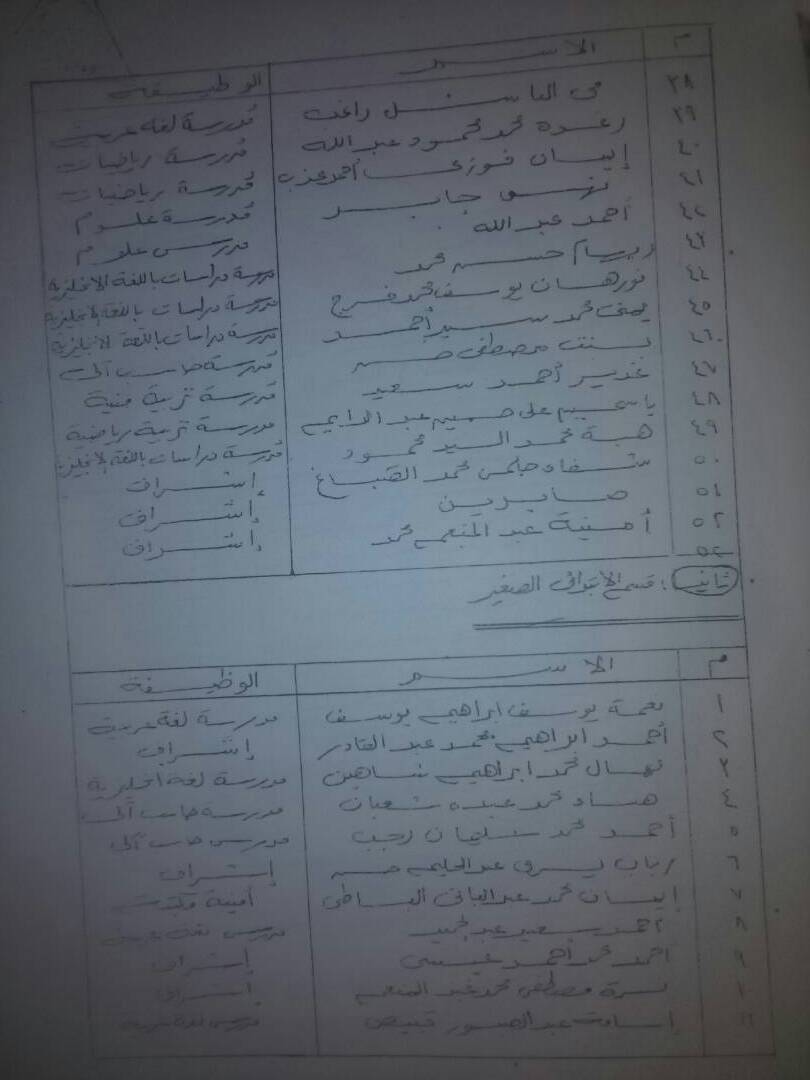 م الاسم الوظيفة
٣٨ مى الباسل راغب مدرسة لغة عربية
٣٩ رغده محمد محمود عبد الله مدرسة رياضيات
٤٠ إيمان فوزى أحمد عزب مدرسة رياضيات
٤١ نهى جابر مدرسة علوم
٤٢ أحمد عبد الله مدرس علوم
٤٣ ريهام حسن محمد مدرسة دراسات باللغة الانجليزية
٤٤ نورهان يوسف محمد فرج مدرسة دراسات باللغة الانجليزية
٤٥ يمنى محمد سيد أحمد مدرسة دراسات باللغة الانجليزية
٤٦ بسنت مصطفى حسن مدرسة حاسب آلى
٤٧ غدير أحمد سعيد مدرسة تربية فنية
٤٨ ياسمين على عبد الدايم مدرسة تربية رياضية
٤٩ هبة محمد السيد محمود مدرسة دراسات باللغة الانجليزية
٥٠ شفاء حلمى محمد الصباغ إشراف
٥١ صابرين إشراف
٥٢ أمنية عبد المنعم محمد إشراف
٥٣
ثانياً : قسم الابتدائى الصغير
م الاسم الوظيفة
١ نعمة يوسف ابراهيم يوسف مدرسة لغة عربية
٢ أحمد ابراهيم محمد عبد القادر إشراف
٣ نهال محمد ابراهيم شاهين مدرسة لغة انجليزية
٤ هناء محمد عبده شعبان مدرسة حاسب آلى
٥ أحمد محمد سليمان رجب مدرس حاسب آلى
٦ رباب يسرى عبد الحليم حسن إشراف
٧ إيمان محمد عبد الباقى أمينة مكتبة
٨ أحمد سعيد مدرس لغة عربية
٩ أحمد محمد أحمد عيسى إشراف
١٠ مصطفى محمد عبد المنعم إشراف
١١ عبد الصبور مدرس لغة عربية